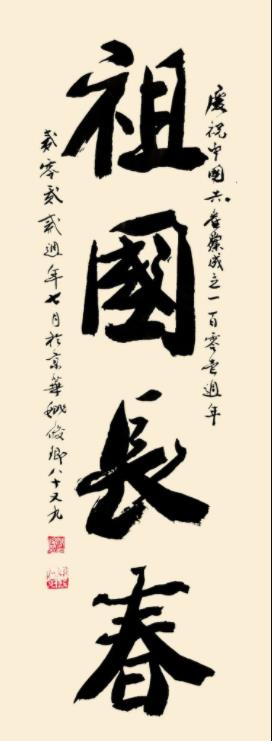 慶祝中国共產黨成立一百零壹週年
祖國長春
貳零貳貳週年七月於京華 俊卿八十又九